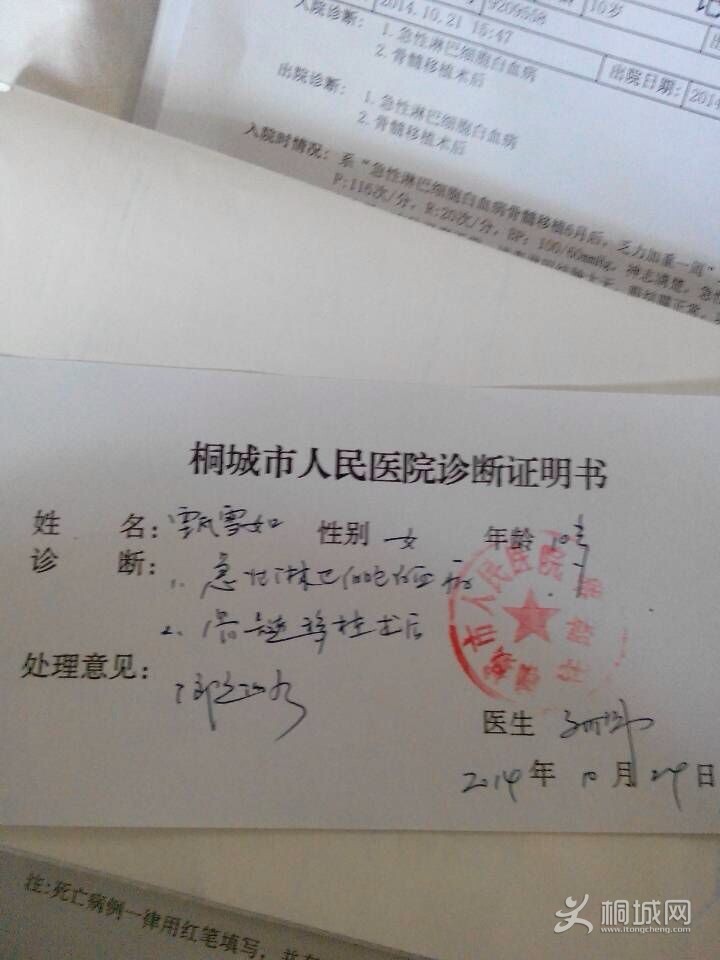 2014.10.21 15:47
9209558
10岁
入院诊断: 1.急性淋巴细胞白血病
2.骨髓移植术后
出院日期: 2014
出院诊断: 1.急性淋巴细胞白血病
2.骨髓移植术后
入院时情况: 系“急性淋巴细胞白血病骨髓移植6月后，乏力加重一周”
P:116次/分，R:20次/分，BP: 100/60mmHg，神志清楚，急性
桐城市人民医院诊断证明书
姓 名: 甄雪如 性别 女 年龄 10岁
诊 断: 1. 急性淋巴细胞白血病
2. 骨髓移植术后
处理意见:
医生
2014年 10月 29日
市人民医院
注:死亡病例一律用红笔填写，并在
桐城网
www.itongcheng.com